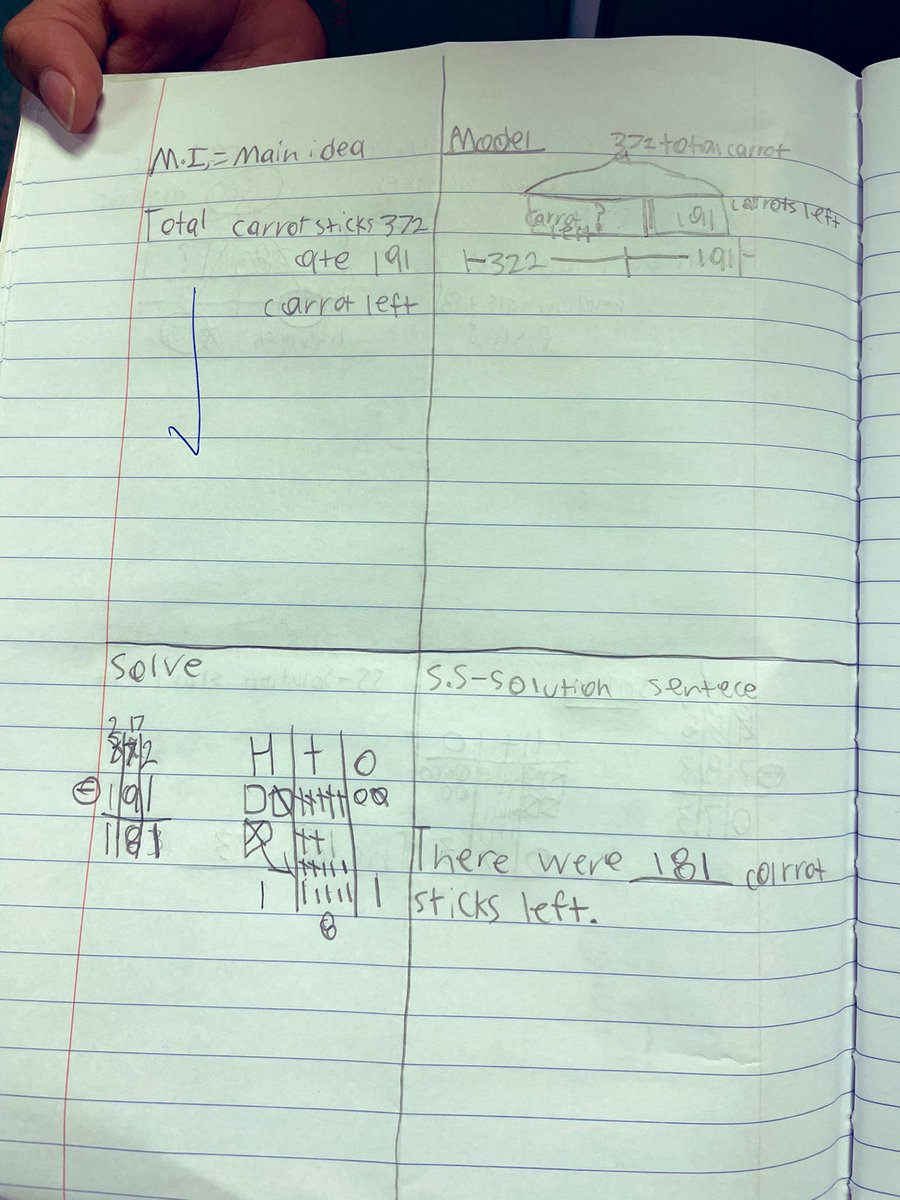 M.I,= Main idea
Total carrot sticks 372
ate 191
carrot left
Model
372 total carrot
carrot ?
left
191
carrots left
322
191
Solve
2 17
372
191
181
H T O
1 1
8
S.S-Solution sentece
There were 181 carrot
sticks left.